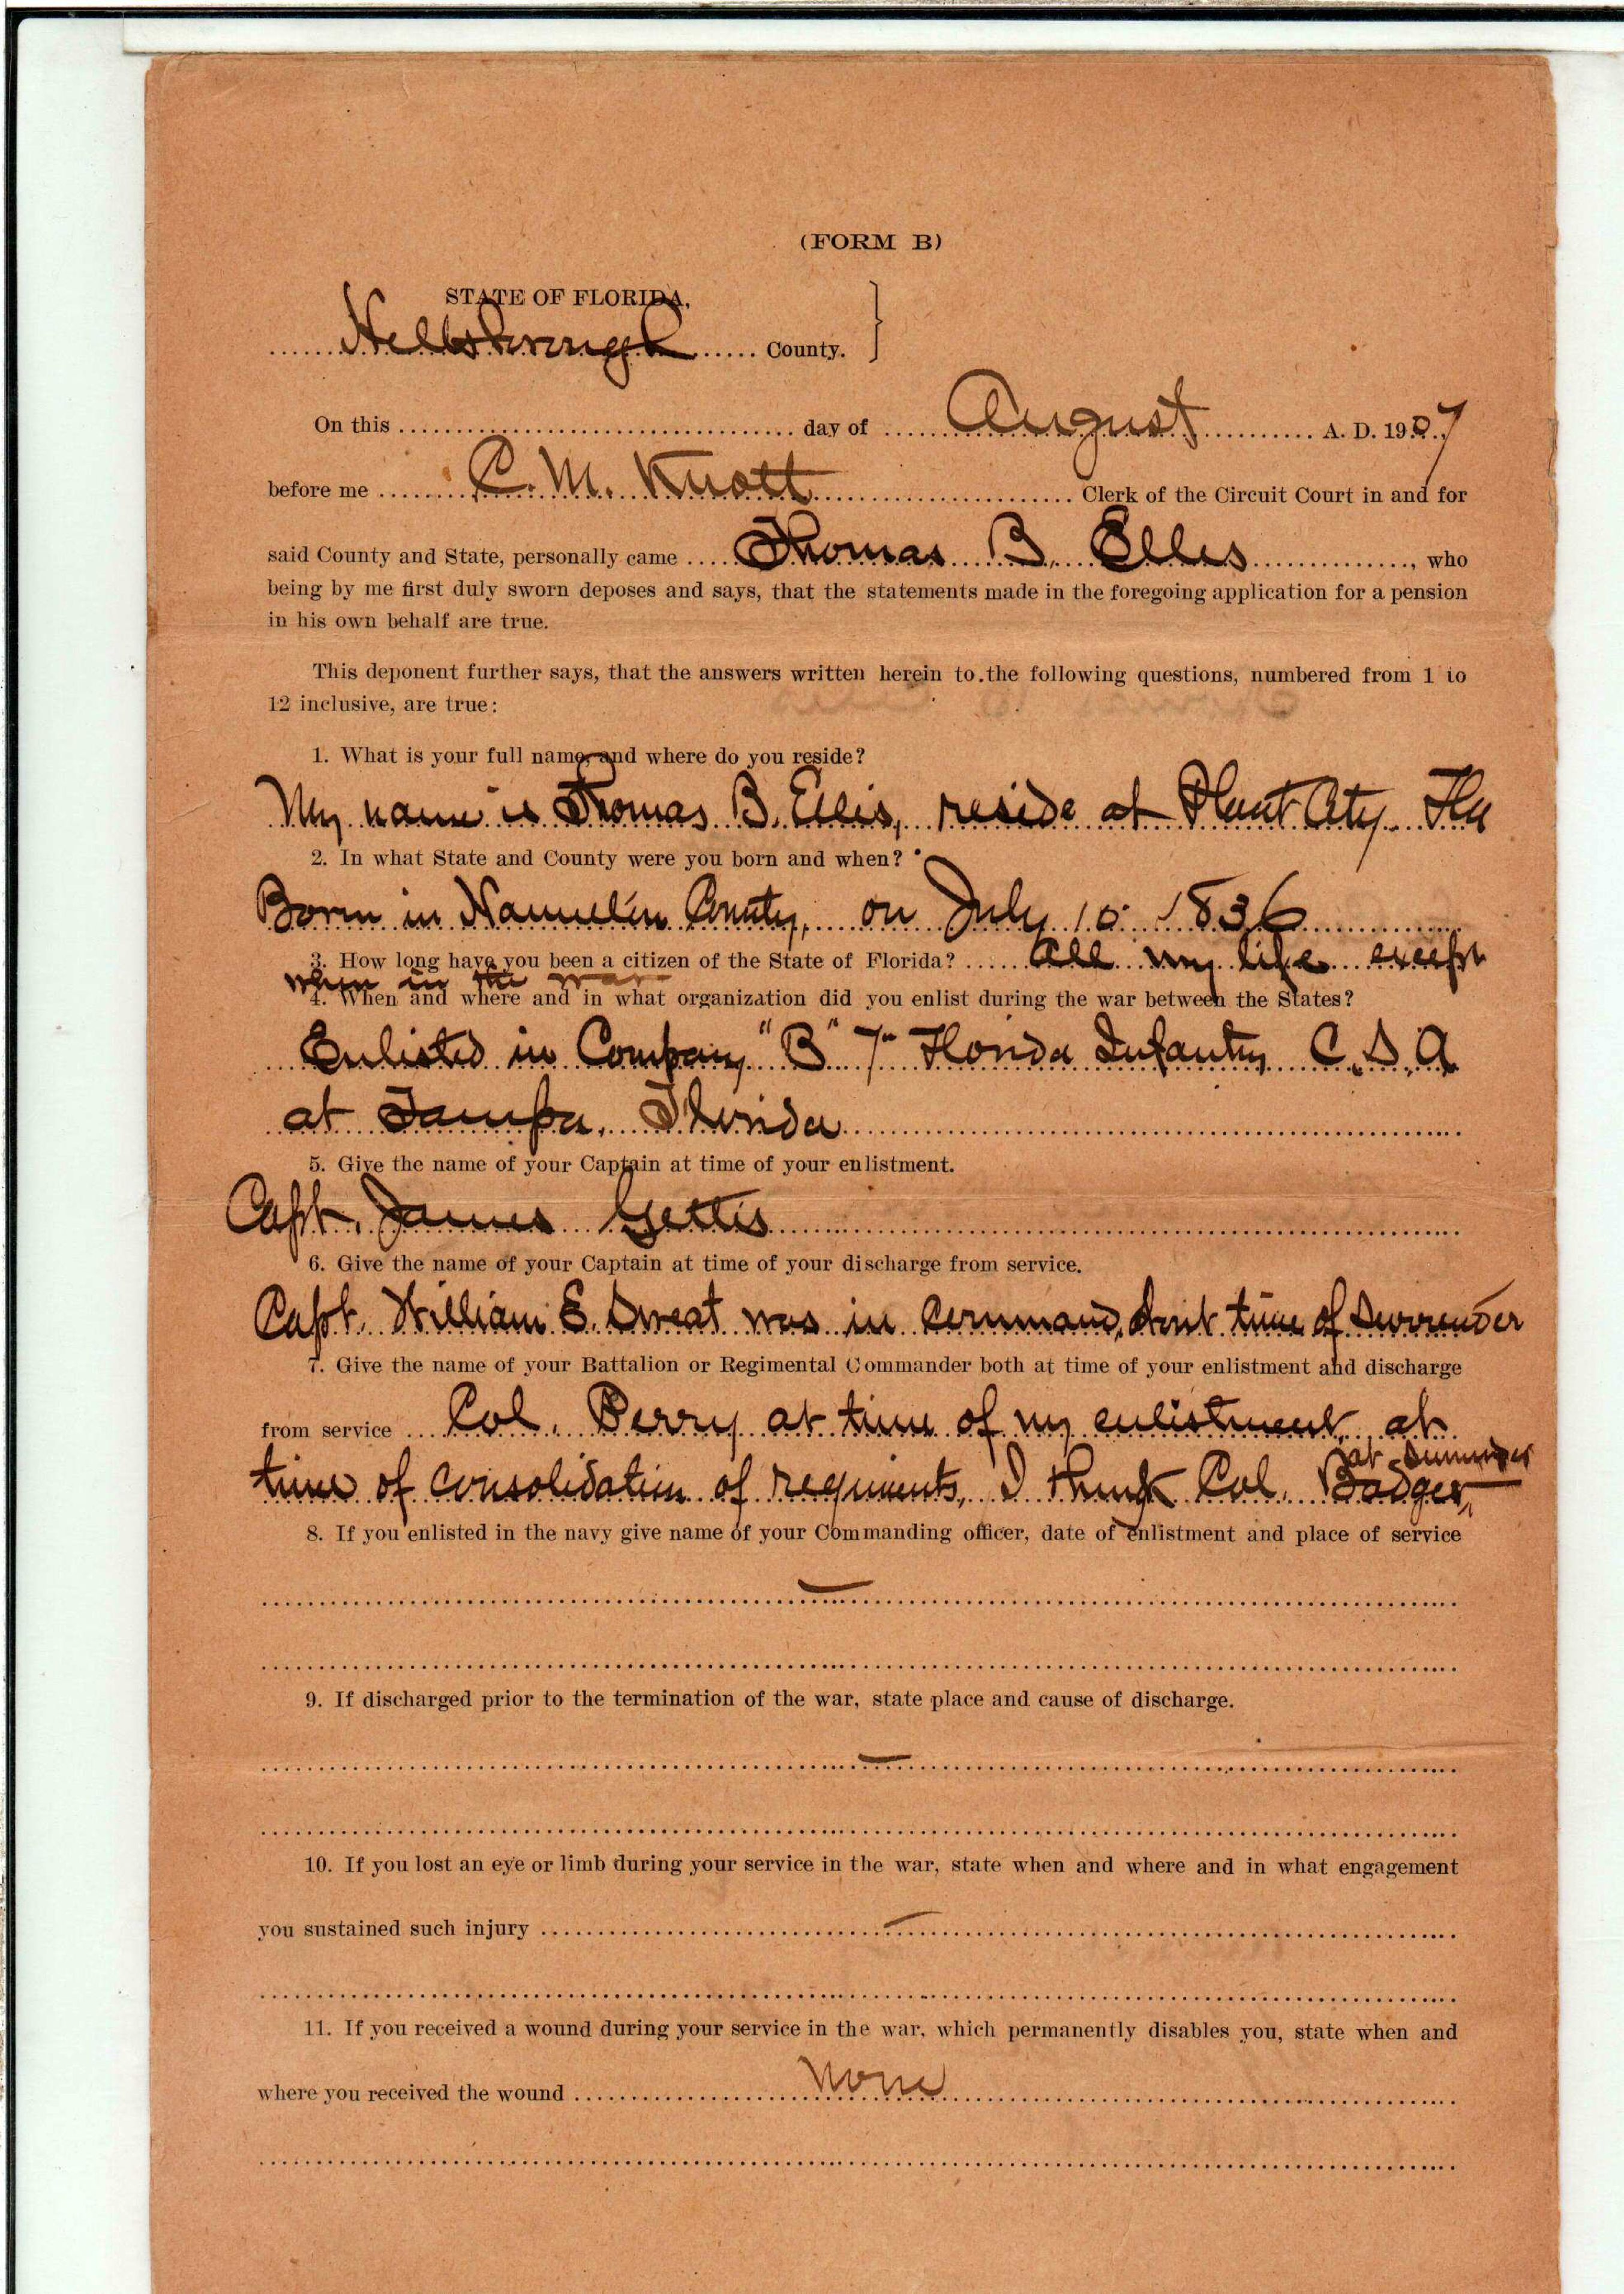 (FORM B)
STATE OF FLORIDA,
Hillsborough County.
On this day of August A. D. 1907
before me C. M. Knott Clerk of the Circuit Court in and for
said County and State, personally came Thomas B. Ellis, who
being by me first duly sworn deposes and says, that the statements made in the foregoing application for a pension
in his own behalf are true.
This deponent further says, that the answers written herein to the following questions, numbered from 1 to
12 inclusive, are true:
1. What is your full name, and where do you reside?
My name is Thomas B. Ellis, reside at Plant City Fla
2. In what State and County were you born and when?
Born in County, on July 10 1836
3. How long have you been a citizen of the State of Florida? All my life except
when in the war
4. When and where and in what organization did you enlist during the war between the States?
Enlisted in Company "B" 7" Florida Infantry C.S.A.
at Tampa, Florida
5. Give the name of your Captain at time of your enlistment.
Capt. James Gettis
6. Give the name of your Captain at time of your discharge from service.
Capt. William E. Sweat was in command, time of surrender
7. Give the name of your Battalion or Regimental Commander both at time of your enlistment and discharge
from service Col. Perry at time of my enlistment, at
at surrender
time of consolidation of regiments, I think Col. Badger,
8. If you enlisted in the navy give name of your Commanding officer, date of enlistment and place of service
9. If discharged prior to the termination of the war, state place and cause of discharge.
10. If you lost an eye or limb during your service in the war, state when and where and in what engagement
you sustained such injury
11. If you received a wound during your service in the war, which permanently disables you, state when and
where you received the wound None